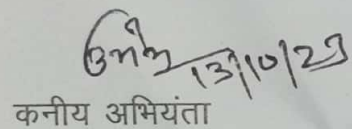 13/10/23
कनीय अभियंता